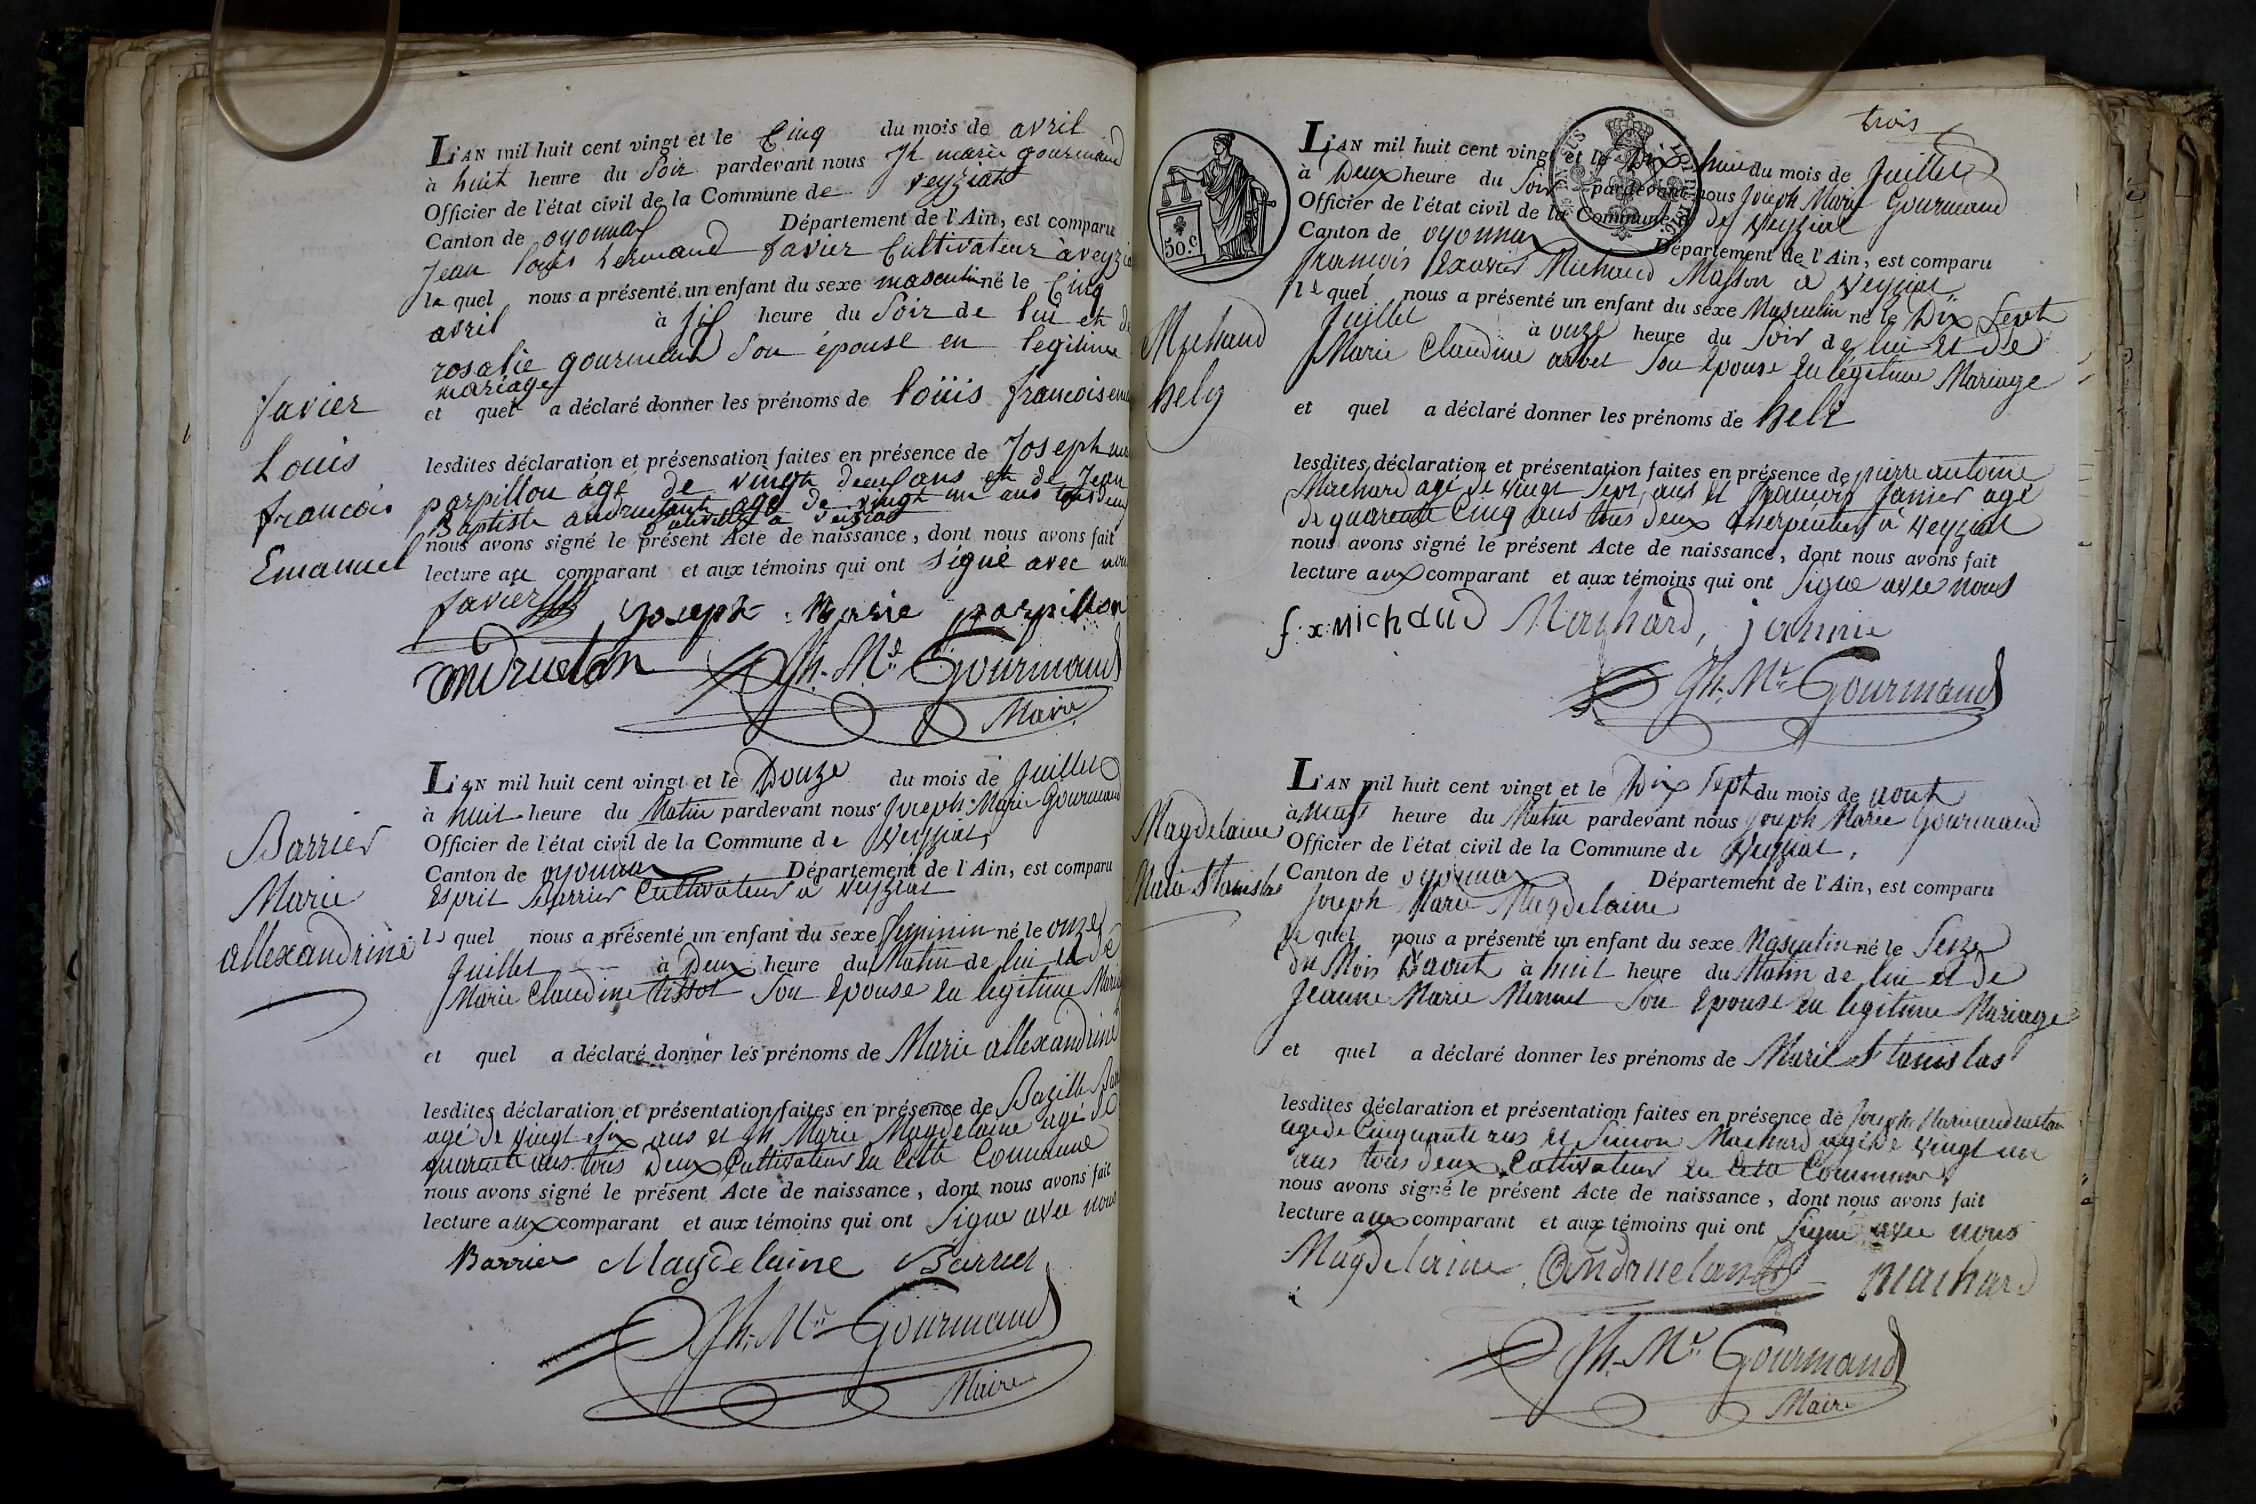 L'AN mil huit cent vingt et le Cinq du mois de avril
à huit heure du Soir pardevant nous Jh marie gourmand
Officier de l'état civil de la Commune de veyziat
Canton de oyonnax Département de l'Ain, est comparu
Jean louis favier Cultivateur à veyzia
le quel nous a présenté un enfant du sexe masculin né le Cinq
avril à six heure du Soir de lui et de
rosalie gourmand Son épouse en legitime
mariage
et quel a déclaré donner les prénoms de loüis francois
favier
Louis
francois
Emanuel
lesdites déclaration et présensation faites en présence de Joseph
parpillon âgé de vingt deux ans et de Jean
Baptiste agé de vingt un ans tous deux
nous avons signé le présent Acte de naissance, dont nous avons fait
lecture au comparant et aux témoins qui ont signé avec nous
favier Joseph Marie parpillon
andruetan Jh. Mie Gourmand
Maire
L'AN mil huit cent vingt et le Douze du mois de Juillet
à huit heure du Matin pardevant nous Joseph Marie Gourmand
Officier de l'état civil de la Commune de Veyziat
Canton de oyonnax Département de l'Ain, est comparu
Esprit Barrier Cultivateur à Veyziat
le quel nous a présenté un enfant du sexe feminin né le onze
Juillet à Deux heure du Matin de lui et de
Marie Claudine tissot Son Epouse en legitime
et quel a déclaré donner les prénoms de Marie allexandrine
Barrier
Marie
allexandrine
lesdites déclaration et présentation faites en présence de Bazille
agé de vingt six ans et Jh Marie Magdelaine agé de
quarente ans tous Deux Cultivateur en Cette Commune
nous avons signé le présent Acte de naissance, dont nous avons fait
lecture aux comparant et aux témoins qui ont Signe avec nous
Barrier Magdelaine Barrier
Jh. Mie Gourmand
Maire
trois
50.c
L'AN mil huit cent vingt et le Dix huit du mois de Juillet
à Deux heure du Soir pardevant nous Joseph Marie Gourmand
Officier de l'état civil de la Commune de Veyziat
Canton de oyonnax Département de l'Ain, est comparu
francois Xavier Michaud Masson à Veyziat
le quel nous a présenté un enfant du sexe Masculin né le Dix Sept
Juillet à onze heure du Soir de lui et de
Marie Claudine Son Epouse en legitime Mariage
et quel a déclaré donner les prénoms de
Michaud
lesdites déclaration et présentation faites en présence de pierre antoine
Machard agé de vingt Sept ans et françois Janier agé
de quarente Cinq ans tous deux Cherpentier à Veyziat
nous avons signé le présent Acte de naissance, dont nous avons fait
lecture aux comparant et aux témoins qui ont Signé avec nous
f. x. Michaud Machard, jannie
Jh. Mie Gourmand
L'AN mil huit cent vingt et le Dix Sept du mois de aout
à neuf heure du Matin pardevant nous Joseph Marie Gourmand
Officier de l'état civil de la Commune de Veyziat,
Canton de oyonnax Département de l'Ain, est comparu
Joseph Marie Magdelaine
le quel nous a présenté un enfant du sexe Masculin né le Seize
du Mois D'aout à huit heure du Matin de lui et de
Jeanne Marie Son Epouse en legitime Mariage
et quel a déclaré donner les prénoms de Marie Stanislas
Magdelaine
Marie Stanislas
lesdites déclaration et présentation faites en présence de Joseph Marie andruetan
agé de Cinquante ans et Simon Machard agé de vingt un
ans tous deux Cultivateur en Cette Commune
nous avons signé le présent Acte de naissance, dont nous avons fait
lecture aux comparant et aux témoins qui ont Signé avec nous
Magdelaine andruetan machard
Jh. Mie Gourmand
Maire